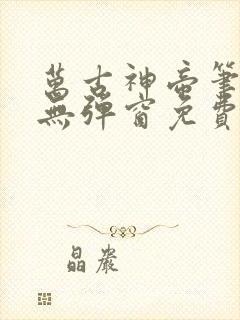 萬古神帝筆
無彈窗免費
晶嚴